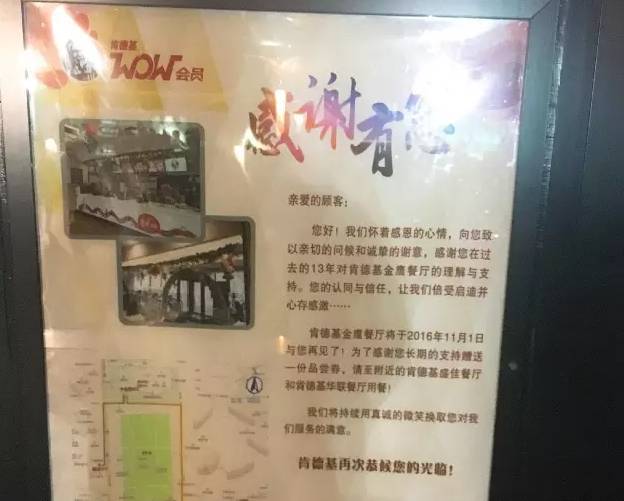 肯德基
WOW会员
感谢有您
亲爱的顾客：
您好！我们怀着感恩的心情，向您致
以亲切的问候和诚挚的谢意，感谢您在过
去的13年对肯德基金鹰餐厅的理解与支
持。您的认同与信任，让我们倍受启迪并
心存感激……
肯德基金鹰餐厅将于2016年11月1日
与您再见了！为了感谢您长期的支持赠送
一份品尝券，请至附近的肯德基盛佳餐厅
和肯德基华联餐厅用餐！
我们将持续用真诚的微笑换取您对我
们服务的满意。
肯德基再次恭候您的光临！